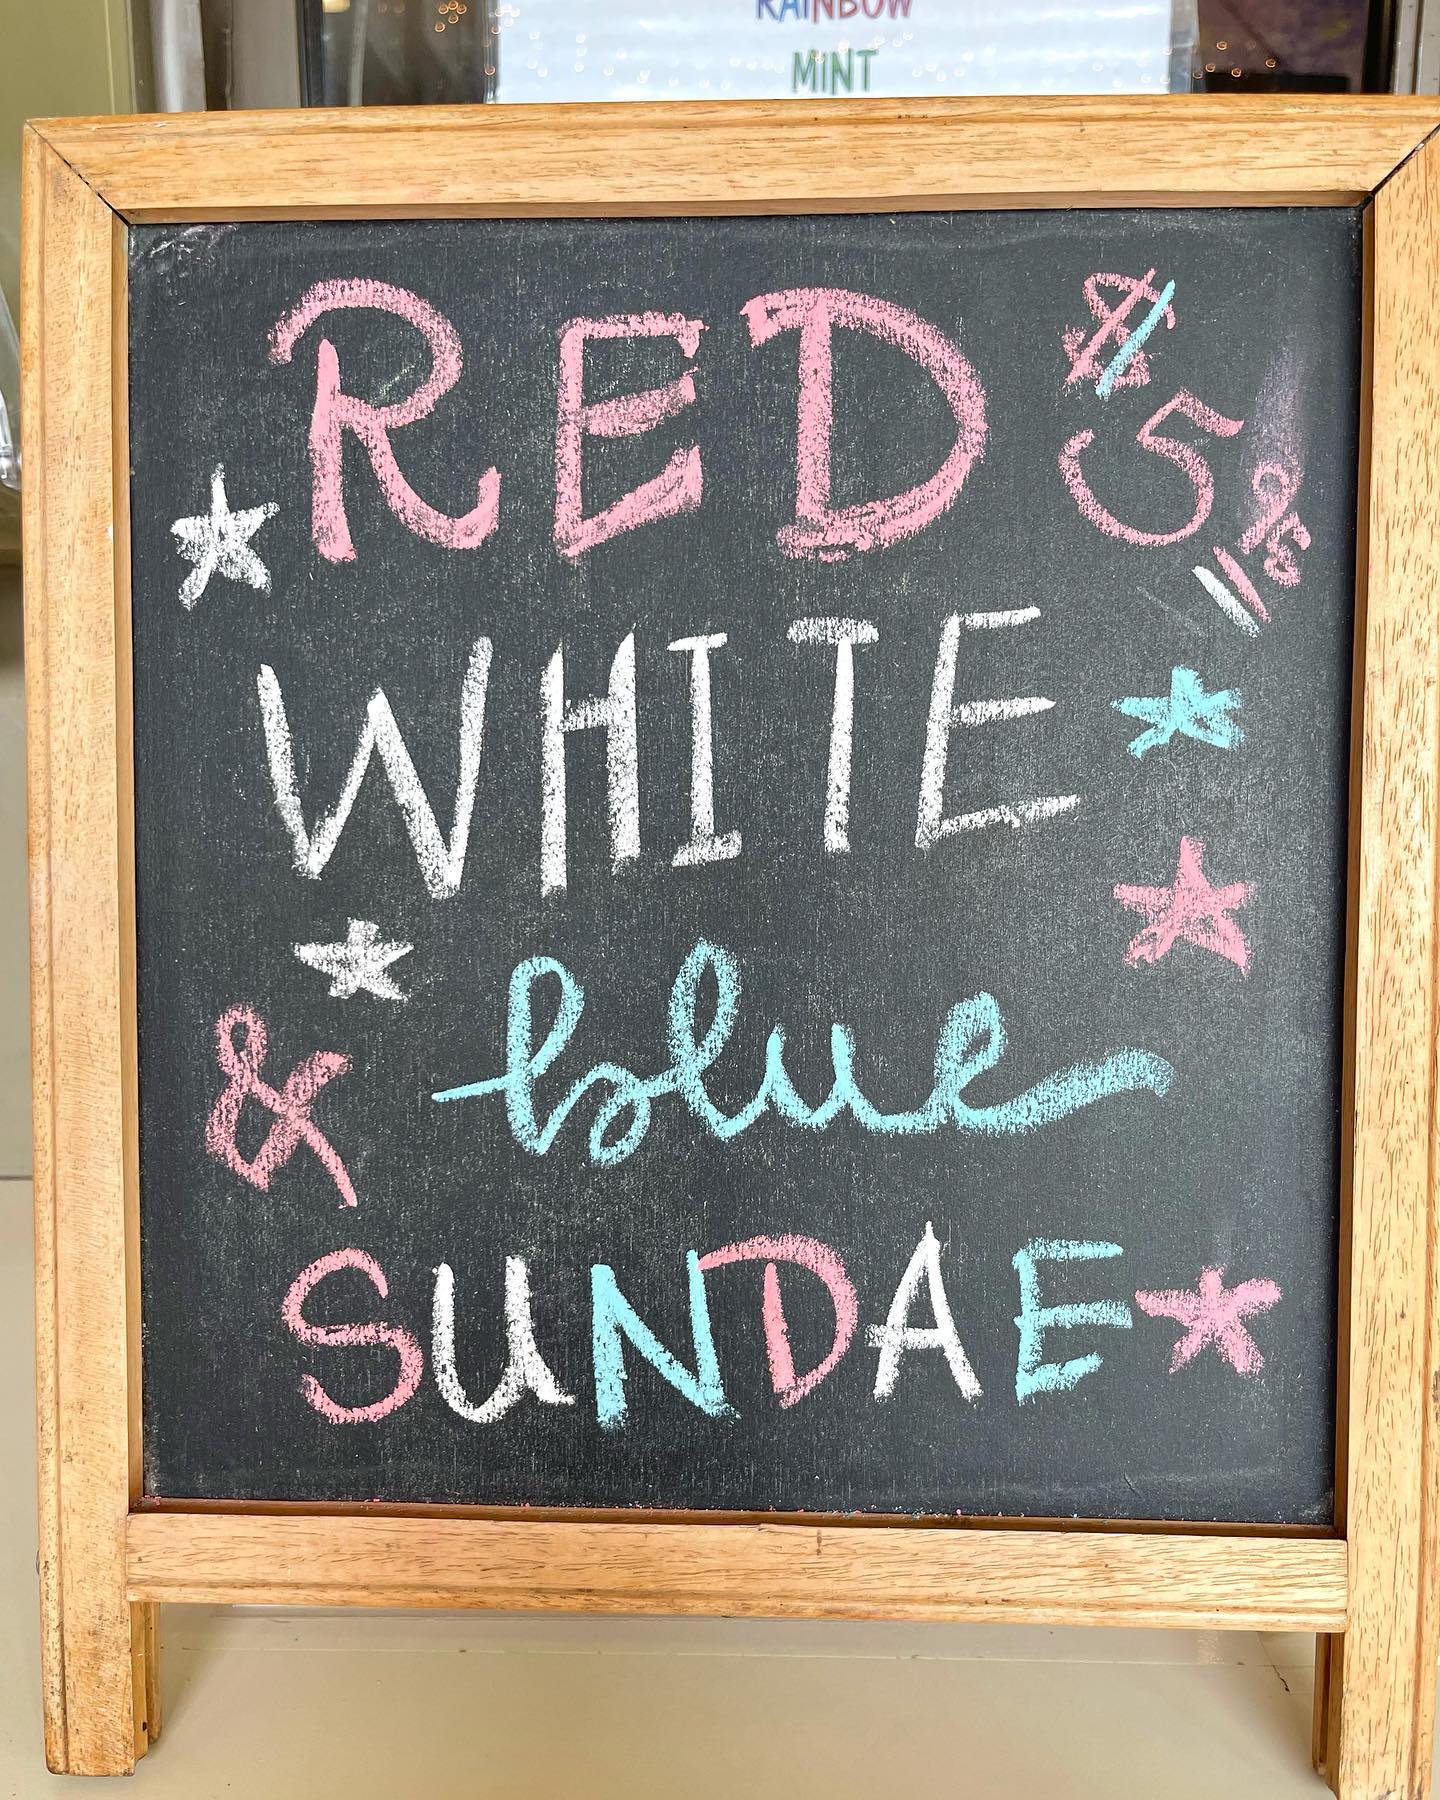 RAINBOW
MINT
RED $5.95
WHITE
& blue
SUNDAE